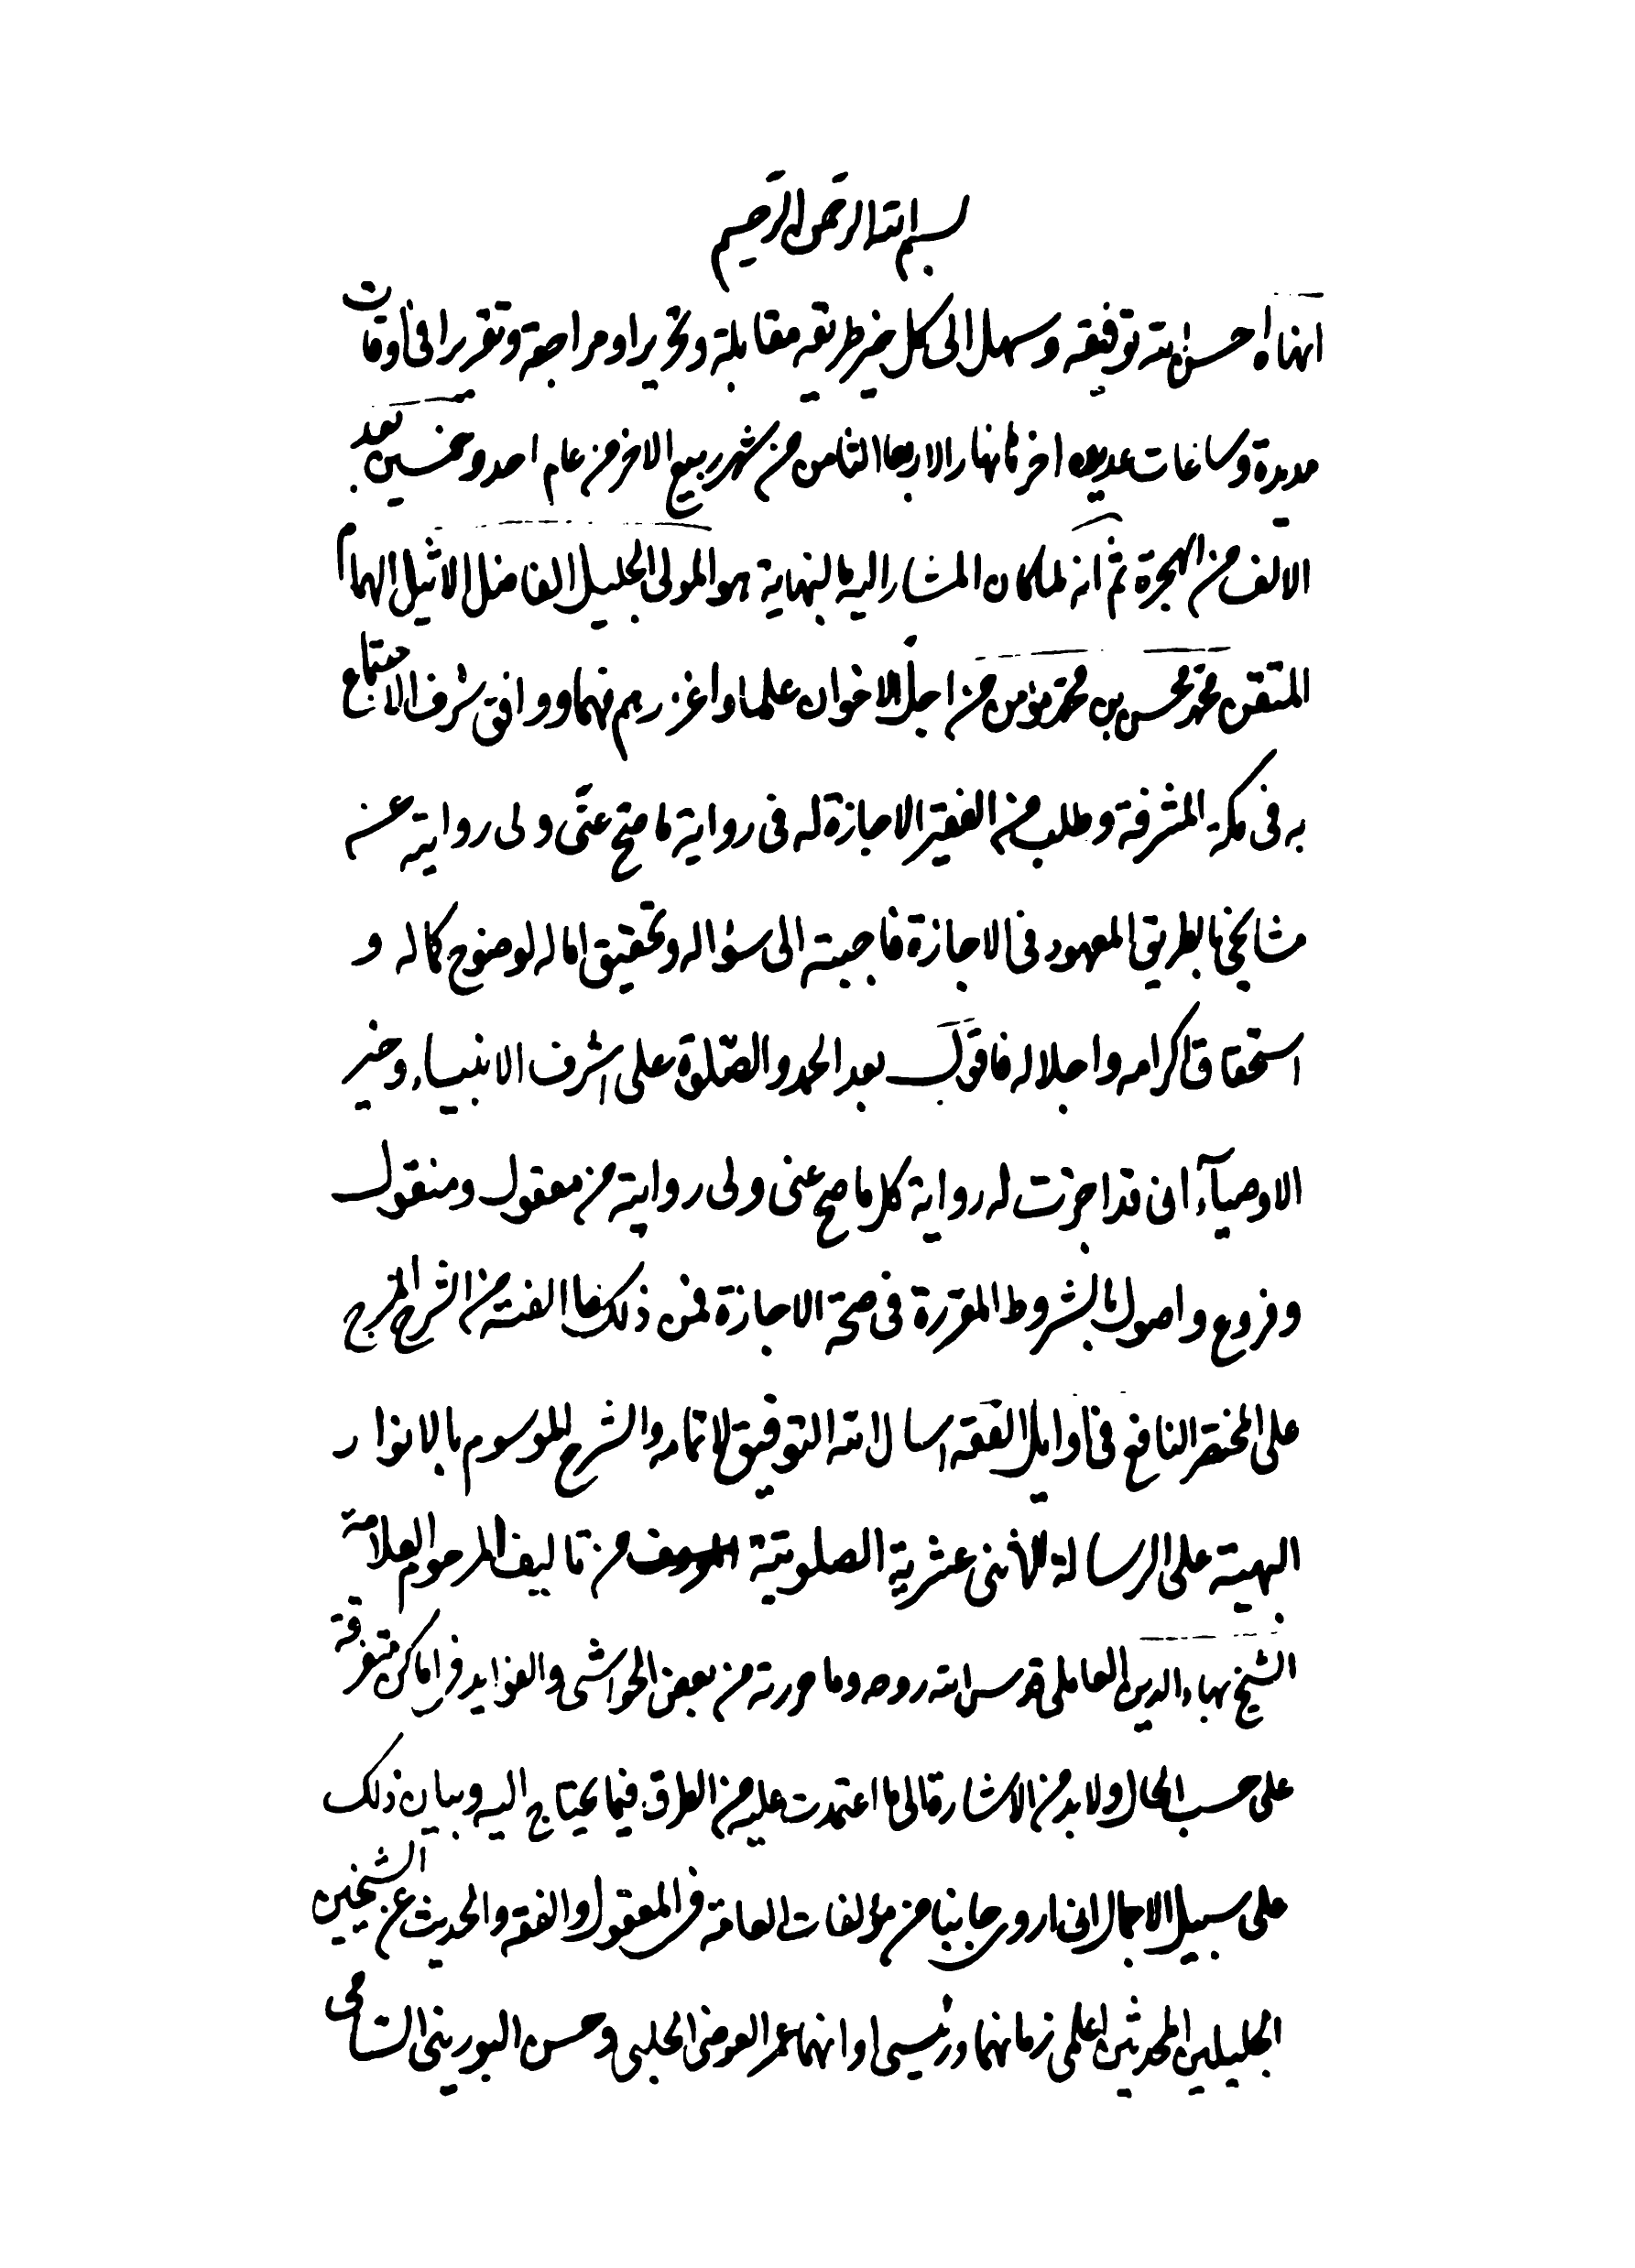 بسم الله الرحمن الرحيم
انهاه احسن الله توفيقه وسهل الى كل خير طريقه مقابلة وتحريرا ومراجعة وتقريرا فى أوقات
مديدة وساعات عديده اخرها نهار الاربعا الثامن من شهر ربيع الاخر من عام احد وخمسين بعد
الالف من الهجرة ثم انه لما كان المشار اليه بالنهاية هو المولى الجليل الفاضل الاثيل الهمام
المتقن محمد محسن بن محمد مؤمن من اجل الاخوان علما واغزرهم فهما ووافق شرف الاجتماع
به فى مكة المشرفة وطلب من الفقير الاجازة له فى رواية ما صح عنى ولى روايته عن
مشايخى بالطريق المعهود فى الاجازة فاجبته الى سؤاله وتحقيق اماله لوضوح كماله و
استحقاق اكرامه واجلاله فاقول بعد الحمد والصلوة على اشرف الانبياء وخير
الاوصيآء انى قد اجزت له رواية كل ما صح عنى ولى روايته من معقول ومنقول
وفروع واصول بالشروط المقررة فى صحة الاجازة فمن ذلك ما الفته من الشرح المزج
على المختصر النافع فى أوايل الفقه اسال الله التوفيق لاتمامه والشرح الموسوم بالانوار
البهية على الرسالة الاثنى عشرية الصلوتية من تاليف المرحوم العلامة
الشيخ بهاء الدين العاملى قدس الله روحه وما حررته من بعض الحواشى والفوايد فى اماكن متفرقة
على حسب الحال ولا بد من الاشارة الى ما اعتمدت عليه من الطرق فيما يحتاج اليه وبيان ذلك
على سبيل الاجمال انى اروى جانبا من مؤلفات العامة فى المعقول والفقه والحديث عن الشيخين
الجليلين المحدثين اعلمى زمانهما ورئيسى اوانهما عمر العرضى الحلبى وحسن البورينى الشامى